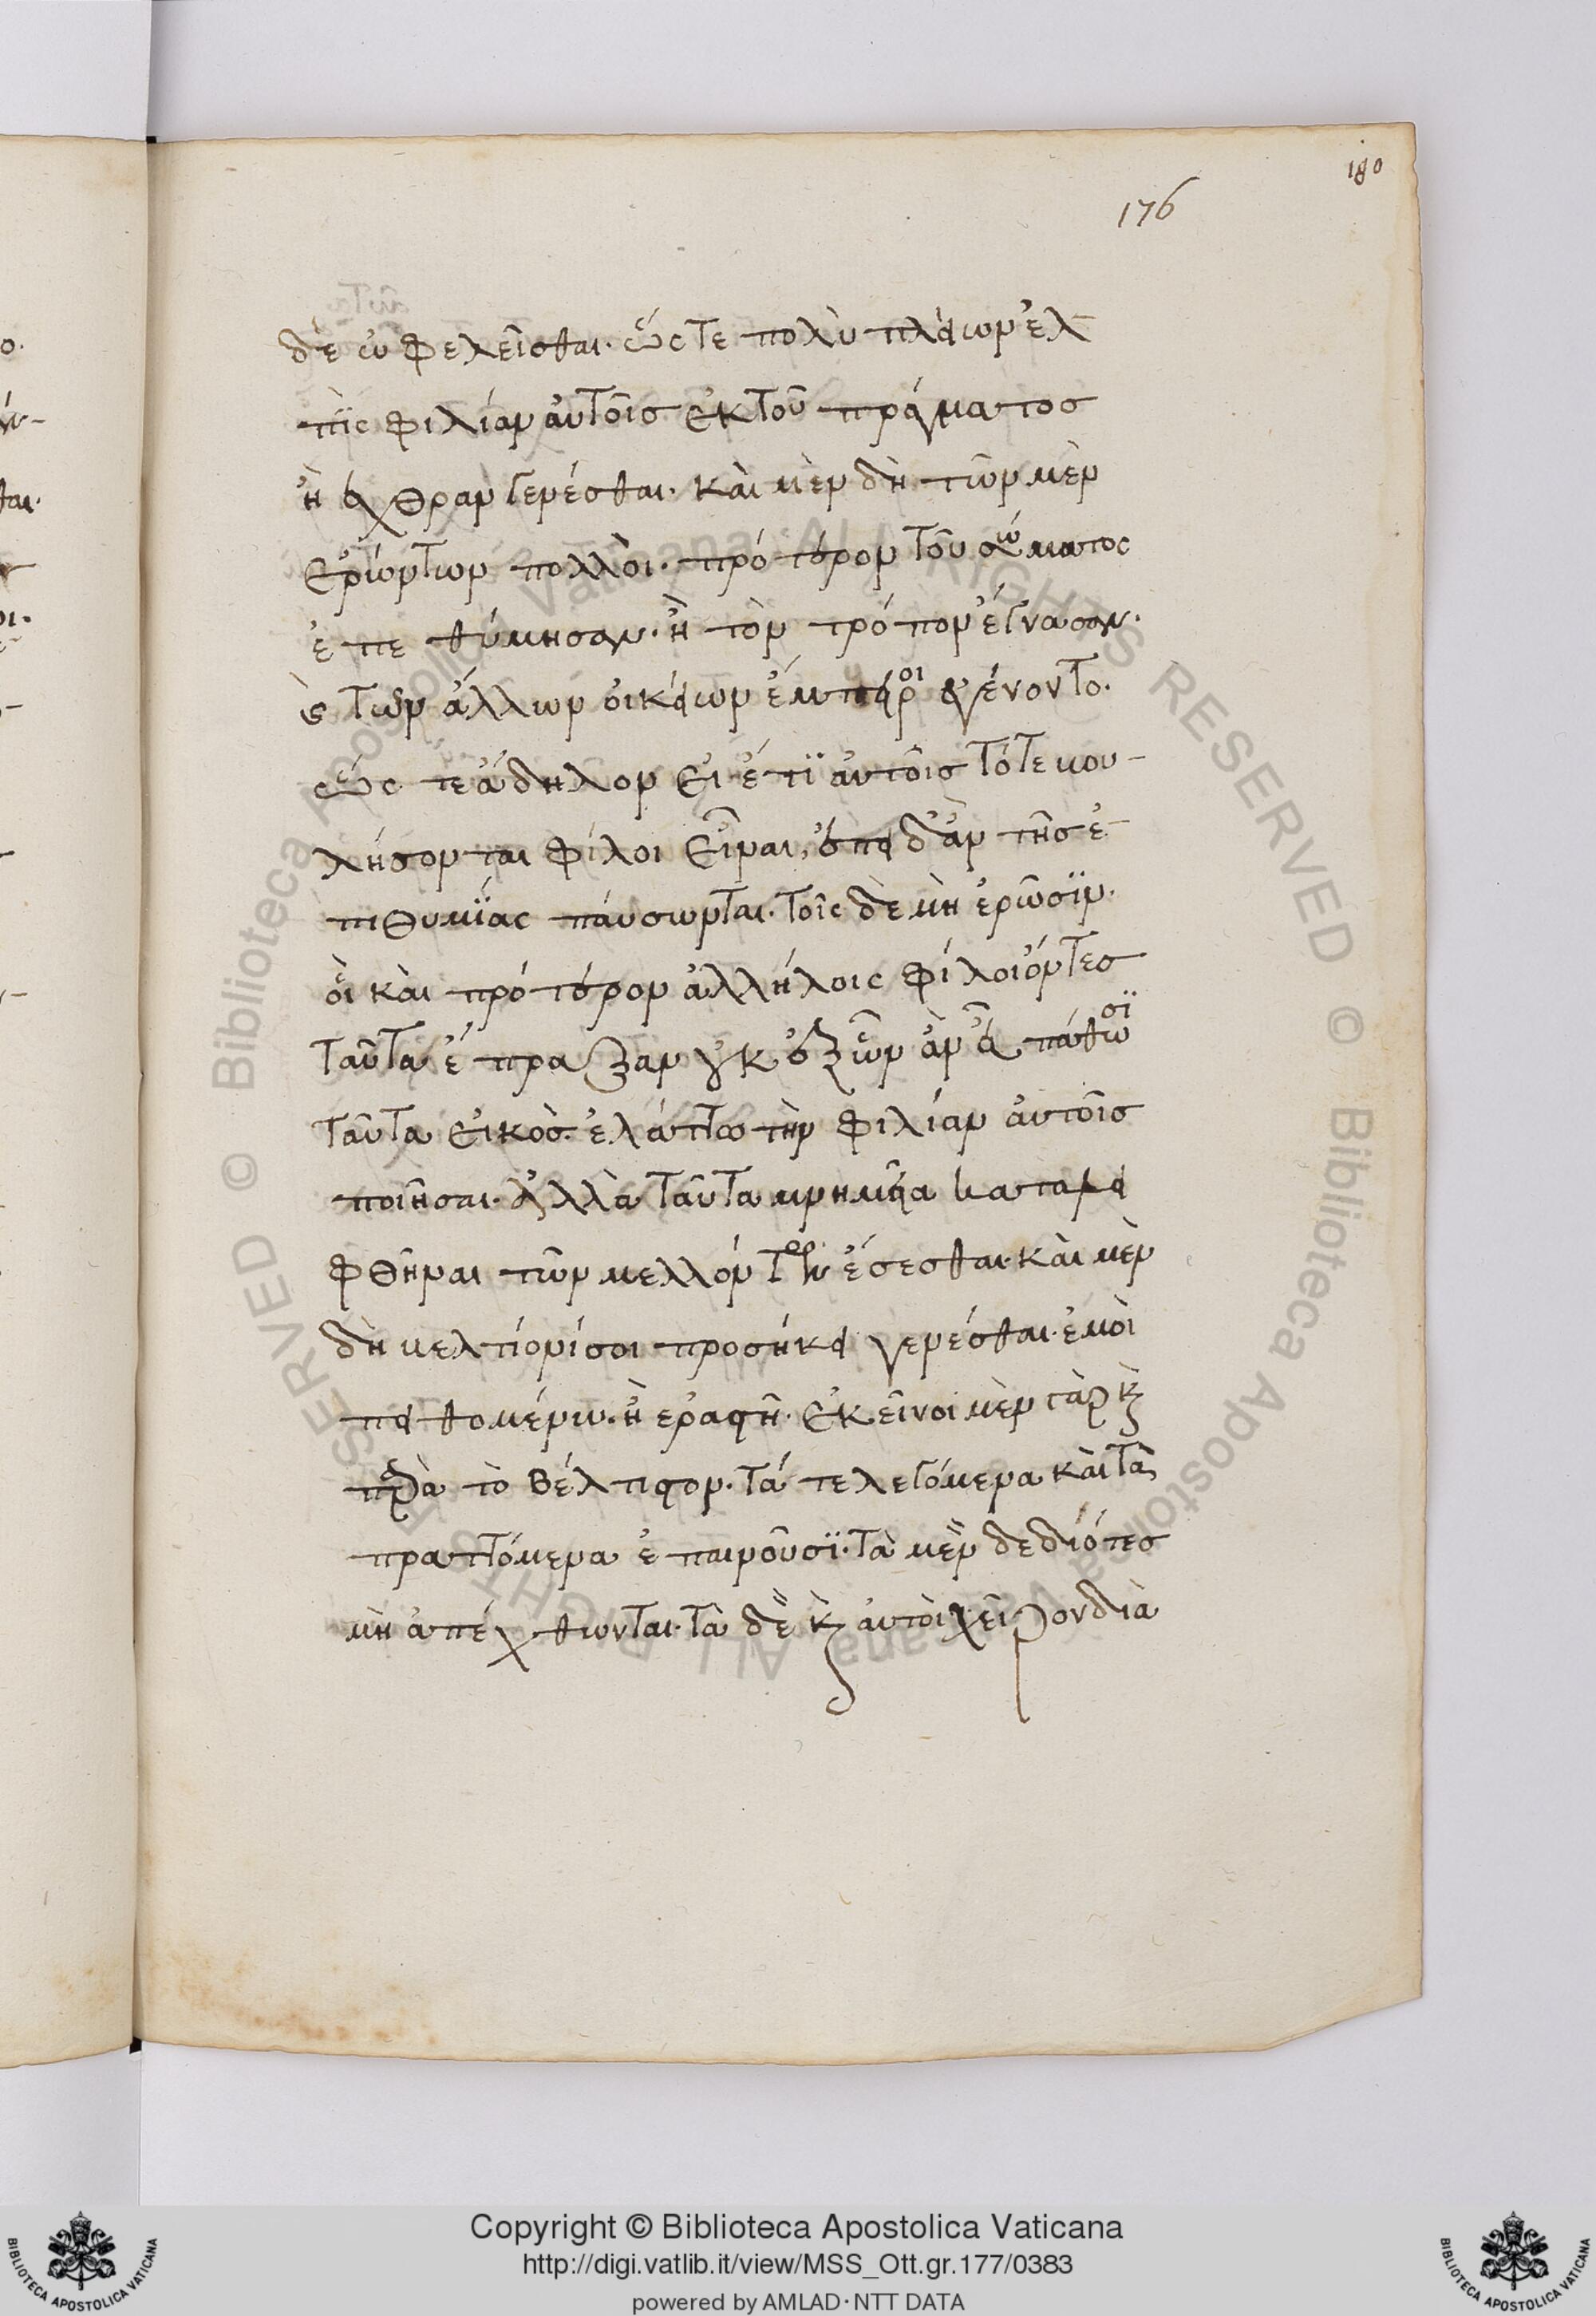 180
176
δὲ ὠφελεῖσθαι· ὥστε πολὺ πλείων ἐλ
πὶς φιλίαν αὐτοῖς ἐκ τοῦ πράγματος
ἢ ἔχθραν γενέσθαι. καὶ μὲν δὴ τῶν μὲν
ἐρώντων πολλοὶ· πρότερον τοῦ σώματος
ἐπεθύμησαν· ἢ τὸν τρόπον ἔγνωσαν·
καὶ τῶν ἄλλων οἰκείων ἔμπειροι ἐγένοντο.
ὥστε ἄδηλον εἰ ἔτι αὐτοῖς τότε βου-
λήσονται φίλοι εἶναι, ἐπειδὰν τῆς ἐ
πιθυμίας παύσωνται. τοῖς δὲ μὴ ἐρῶσιν·
οἳ καὶ πρότερον ἀλλήλοις φίλοι ὄντες
ταῦτα ἔπραξαν οὐκ ἐξ ὧν ἂν εὖ πάθωσι
ταῦτα εἰκὸς ἐλάττω τὴν φιλίαν αὐτοῖς
ποιῆσαι. ἀλλὰ ταῦτα μνημεῖα καταλει
φθῆναι τῶν μελλόντων ἔσεσθαι. καὶ μὲν
δὴ βελτίονί σοι προσήκει γενέσθαι ἐμοὶ
πειθομένῳ. ἢ ἐραστῇ. ἐκεῖνοι μὲν γὰρ καὶ
παρὰ τὸ βέλτιστον. τά τε λεγόμενα καὶ τὰ
πραττόμενα ἐπαινοῦσι. τὰ μὲν δεδιότες
μὴ ἀπέχθωνται. τὰ δὲ καὶ αὐτοὶ χεῖρον διὰ
Copyright © Biblioteca Apostolica Vaticana
http://digi.vatlib.it/view/MSS_Ott.gr.177/0383
powered by AMLAD·NTT DATA